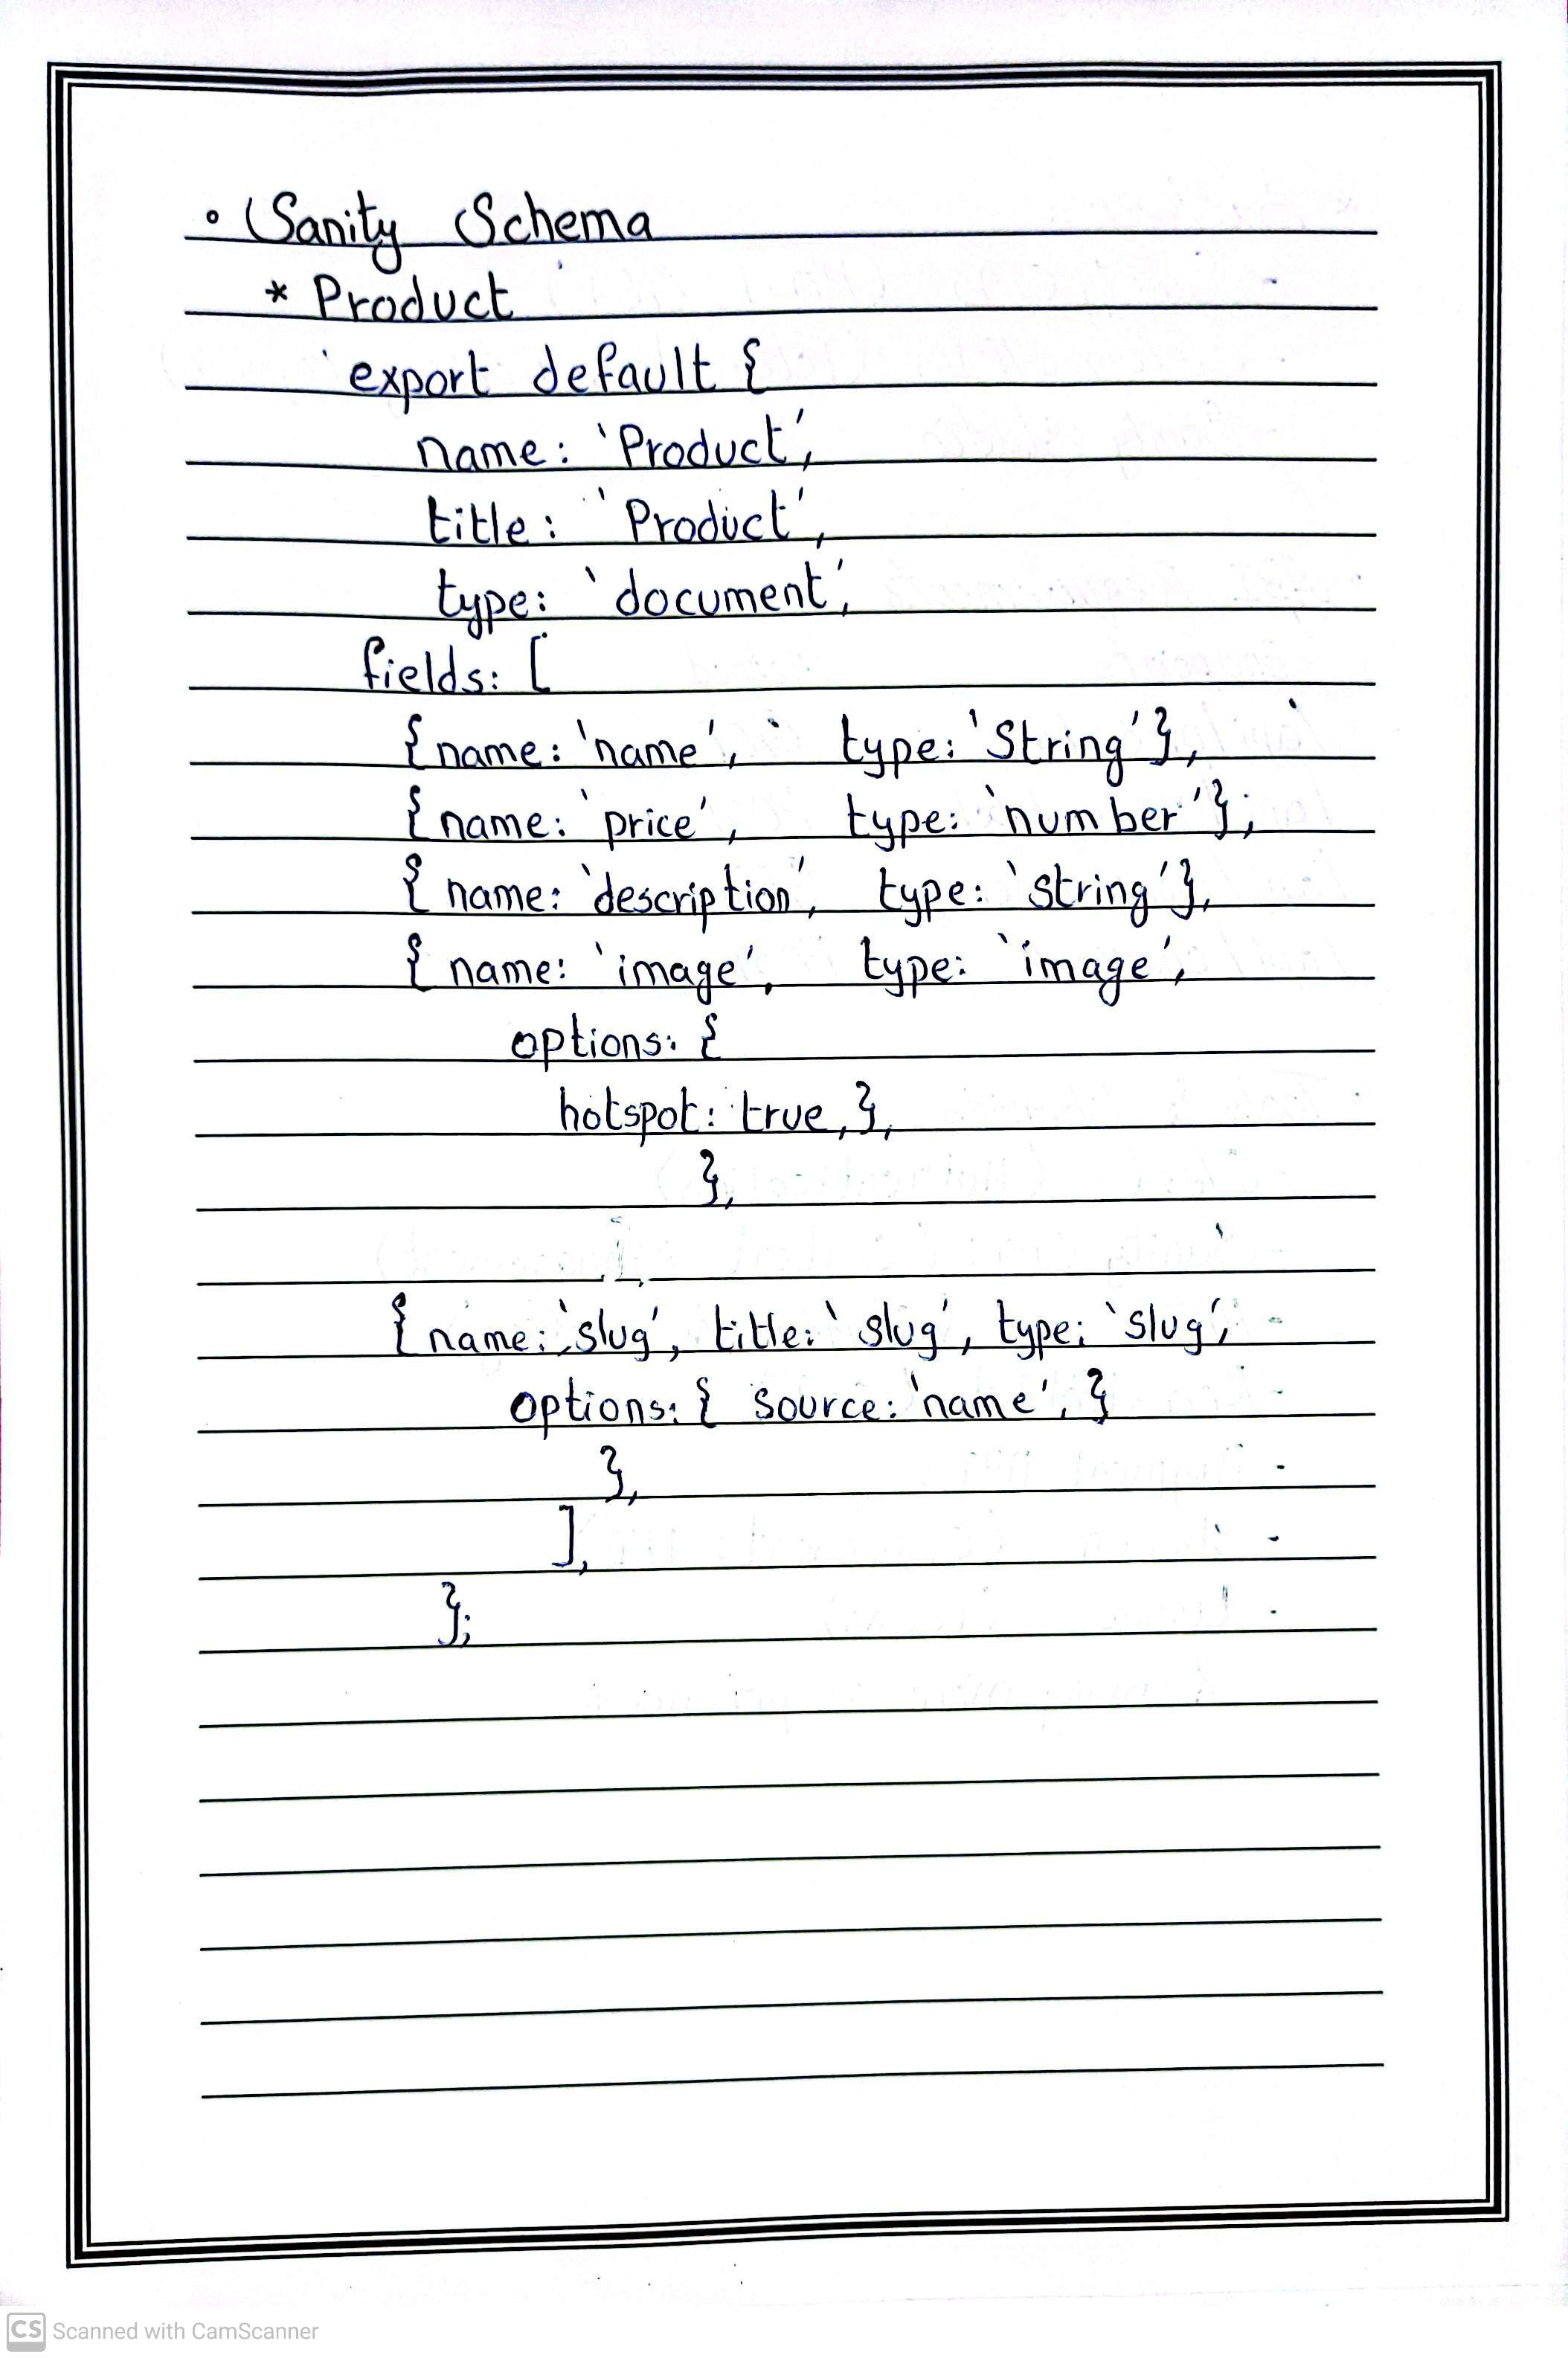 • Sanity Schema
* Product
export default {
name: 'Product',
title: 'Product',
type: 'document',
fields: [
{ name: 'name', type: 'String' },
{ name: 'price', type: 'number' };
{ name: 'description', type: 'string' },
{ name: 'image', type: 'image',
options: {
hotspot: true, },
},
{ name: 'slug', title: 'slug', type: 'slug',
options: { source: 'name', }
},
],
};
CS Scanned with CamScanner